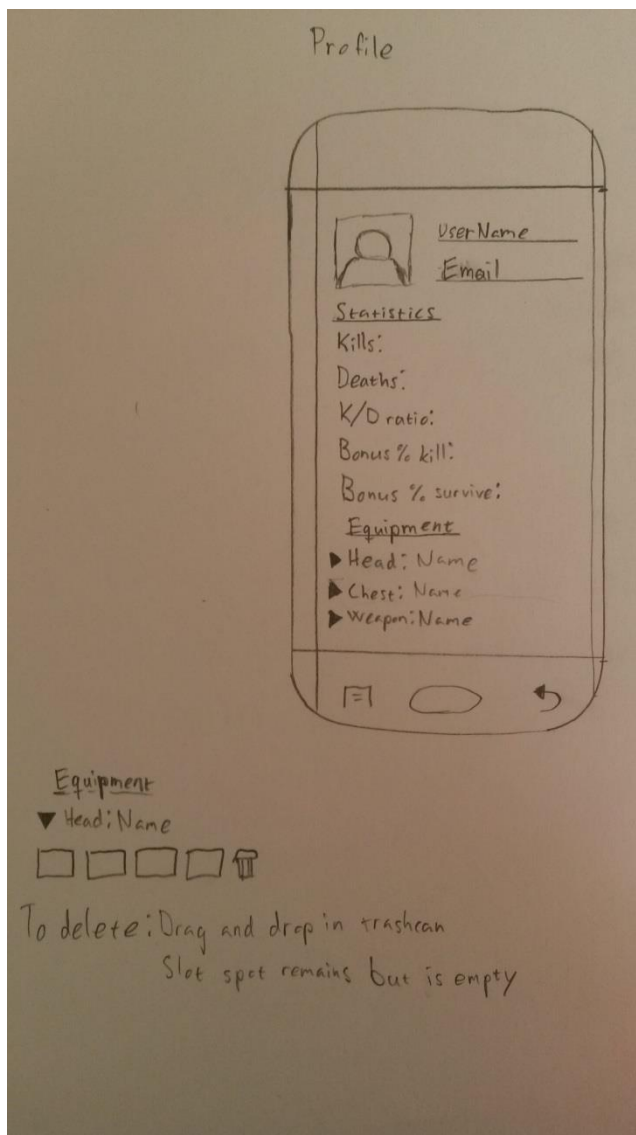 Profile
UserName
Email
Statistics
Kills:
Deaths:
K/D ratio:
Bonus % kill:
Bonus % survive:
Equipment
▶ Head: Name
▶ Chest: Name
▶ Weapon: Name
Equipment
▼ Head: Name
To delete: Drag and drop in trashcan
Slot spot remains but is empty